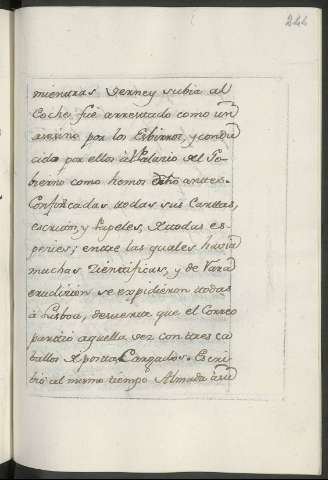 244
mientras Verney subia al
Coche, fué arrestado como un
asesino por los Esbirros, y condu
cido por ellos al Palacio del Go-
bierno como hemos dicho antes.
Confiscadas todas sus Cartas,
escritos, y Papeles, de todas es-
pecies; entre las quales havia
muchas Zientificas, y de Vara
erudicion se expidieron todas
à Lisboa, de suerte que el Correo
partió aquella vez con tres ca
ballos de posta Cargados. Escri
bió al mismo tiempo Almada à su